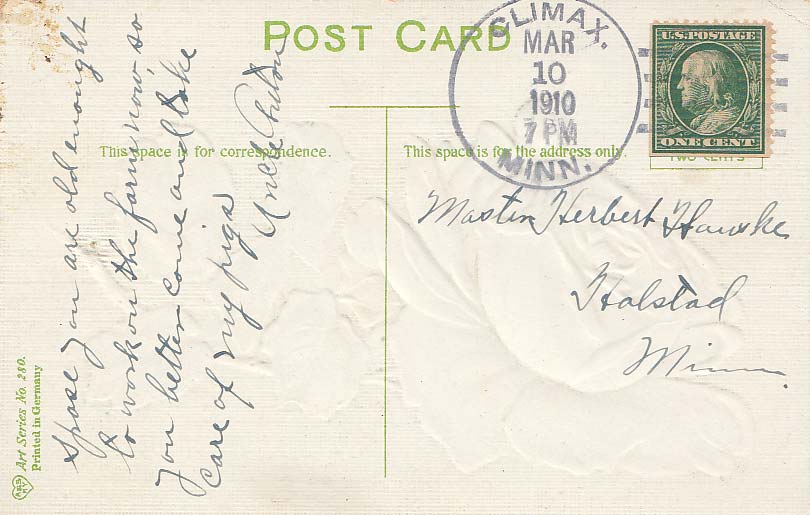 POST CARD
CLIMAX.
MAR
10
1910
7 PM
MINN.
U.S. POSTAGE
ONE CENT
TWO CENTS
This space is for correspondence.
This space is for the address only.
Spose you are old enought
to work on the farm now so
you better come and take
care of my pigs
Uncle Anton
Master Herbert Hawke
Halstad
Minn.
Art Series No. 280.
Printed in Germany